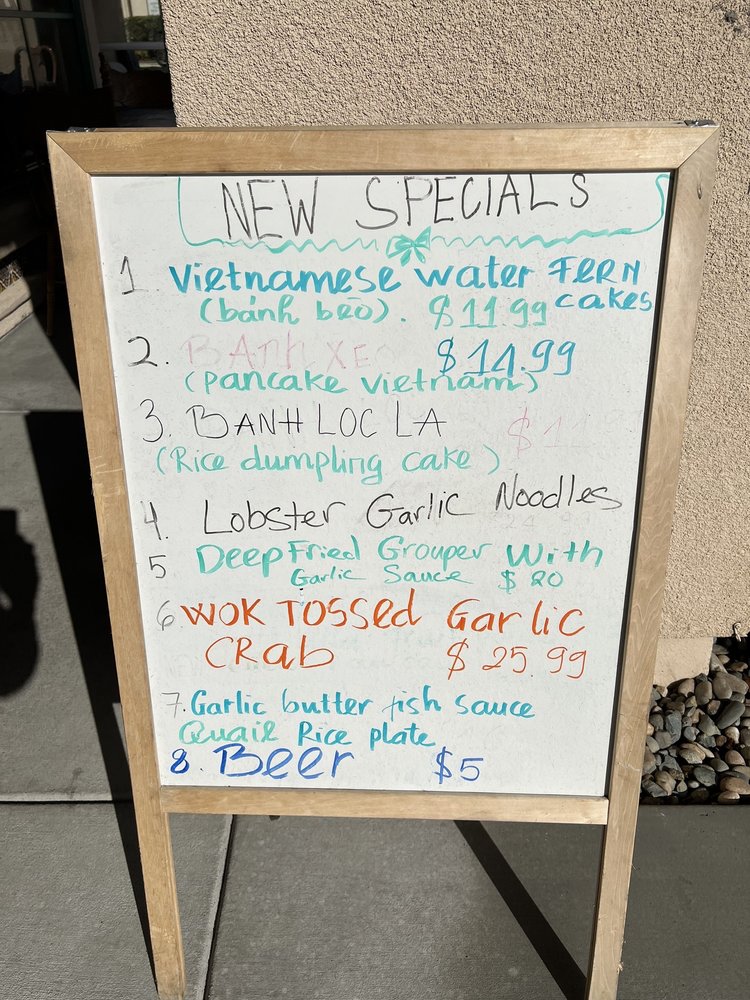 NEW SPECIALS
1 Vietnamese water FERN
(bánh bèo). $11.99 cakes
2. BAnh XEO $14.99
(Pancake Vietnam)
3. BANH LOC LA
(Rice dumpling cake)
4. Lobster Garlic Noodles
5 Deep Fried Grouper With
Garlic Sauce $20
6 WOK TOSSED Garlic
CRab $25.99
7. Garlic butter fish sauce
Quail Rice plate
8. Beer $5